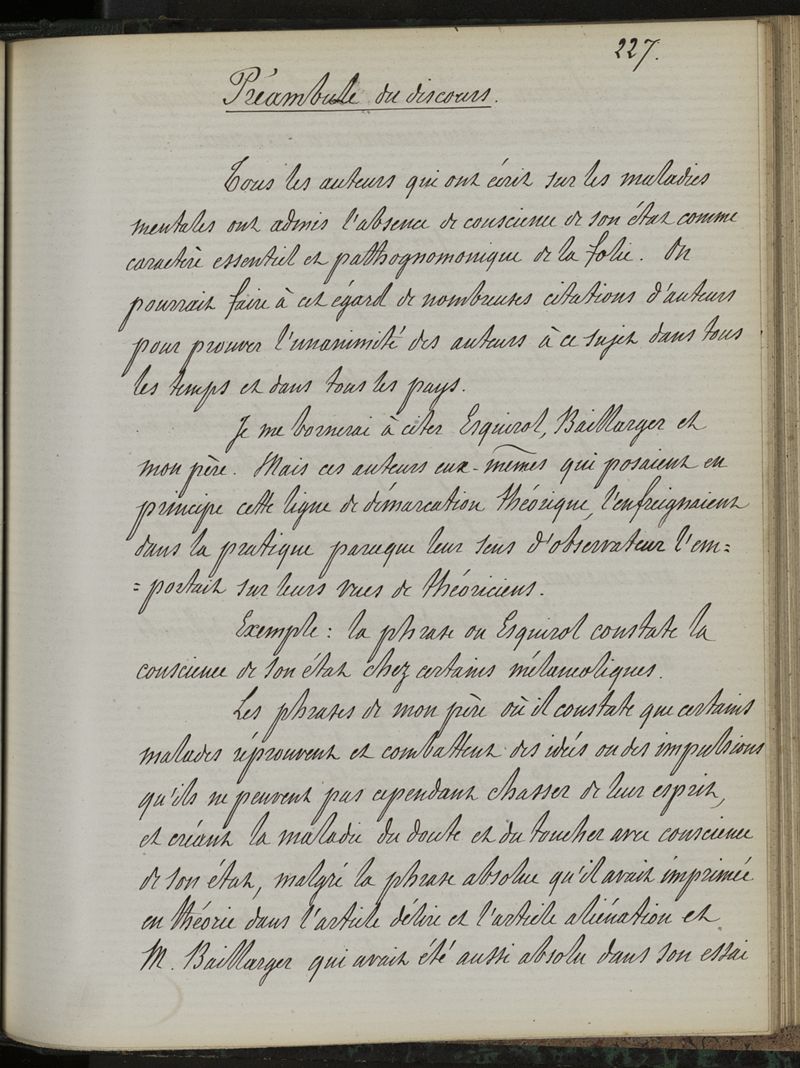 227.
Préambule du discours.
Tous les auteurs qui ont écrit sur les maladies
mentales ont admis l'absence de conscience de son état comme
caractère essentiel et pathognomonique de la folie. On
pourrait faire à cet égard de nombreuses citations d'auteurs
pour prouver l'unanimité des auteurs à ce sujet dans tous
les temps et dans tous les pays.
Je me bornerai à citer Esquirol, Baillarger et
mon père. Mais ces auteurs eux-mêmes qui posaient en
principe cette ligne de démarcation théorique, l'enfreignaient
dans la pratique parceque leur sens d'observateur l'em=
=portait sur leurs vues de théoriciens.
Exemple : la phrase ou Esquirol constate la
conscience de son état chez certains mélancoliques.
Les phrases de mon père où il constate que certains
malades réprouvent et combattent des idées ou des impulsions
qu'ils ne peuvent pas cependant chasser de leur esprit,
et créant la maladie du doute et du toucher avec conscience
de son état, malgré la phrase absolue qu'il avait imprimée
en théorie dans l'article délire et l'article aliénation et
M. Baillarger qui avait été aussi absolu dans son essai